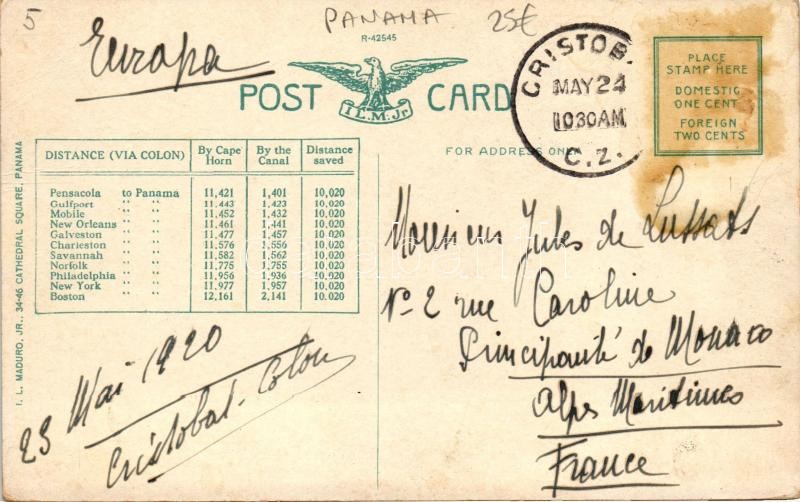 5
PANAMA
25€
R-42545
Europa
POST CARD
I.L.M. Jr
CRISTOB.
MAY 24
1030AM
C.Z.
PLACE
STAMP HERE
DOMESTIC
ONE CENT
FOREIGN
TWO CENTS
FOR ADDRESS ONLY
DISTANCE (VIA COLON) By Cape Horn By the Canal Distance saved
Pensacola to Panama 11,421 1,401 10,020
Gulfport " " 11,443 1,423 10,020
Mobile " " 11,452 1,432 10,020
New Orleans " " 11,461 1,441 10,020
Galveston " " 11,477 1,457 10,020
Charleston " " 11,576 1,556 10,020
Savannah " " 11,582 1,562 10,020
Norfolk " " 11,775 1,755 10,020
Philadelphia " " 11,956 1,936 10,020
New York " " 11,977 1,957 10,020
Boston " " 12,161 2,141 10,020
I. L. MADURO, JR., 34-46 CATHEDRAL SQUARE, PANAMA
23 Mai 1920
Cristobal-Colon
Monsieur Jules de
No 2 rue Caroline
Principauté de Monaco
Alpes Maritimes
France